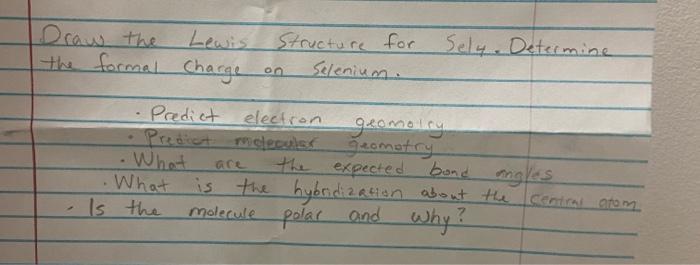 Draw the Lewis Structure for Sely. Determine
the formal charge on Selenium.
· Predict electron geomolry
· Predict molecular geomotry
· What are the expected bond angles
· What is the hybridization about the central atom
- Is the molecule polar and why?